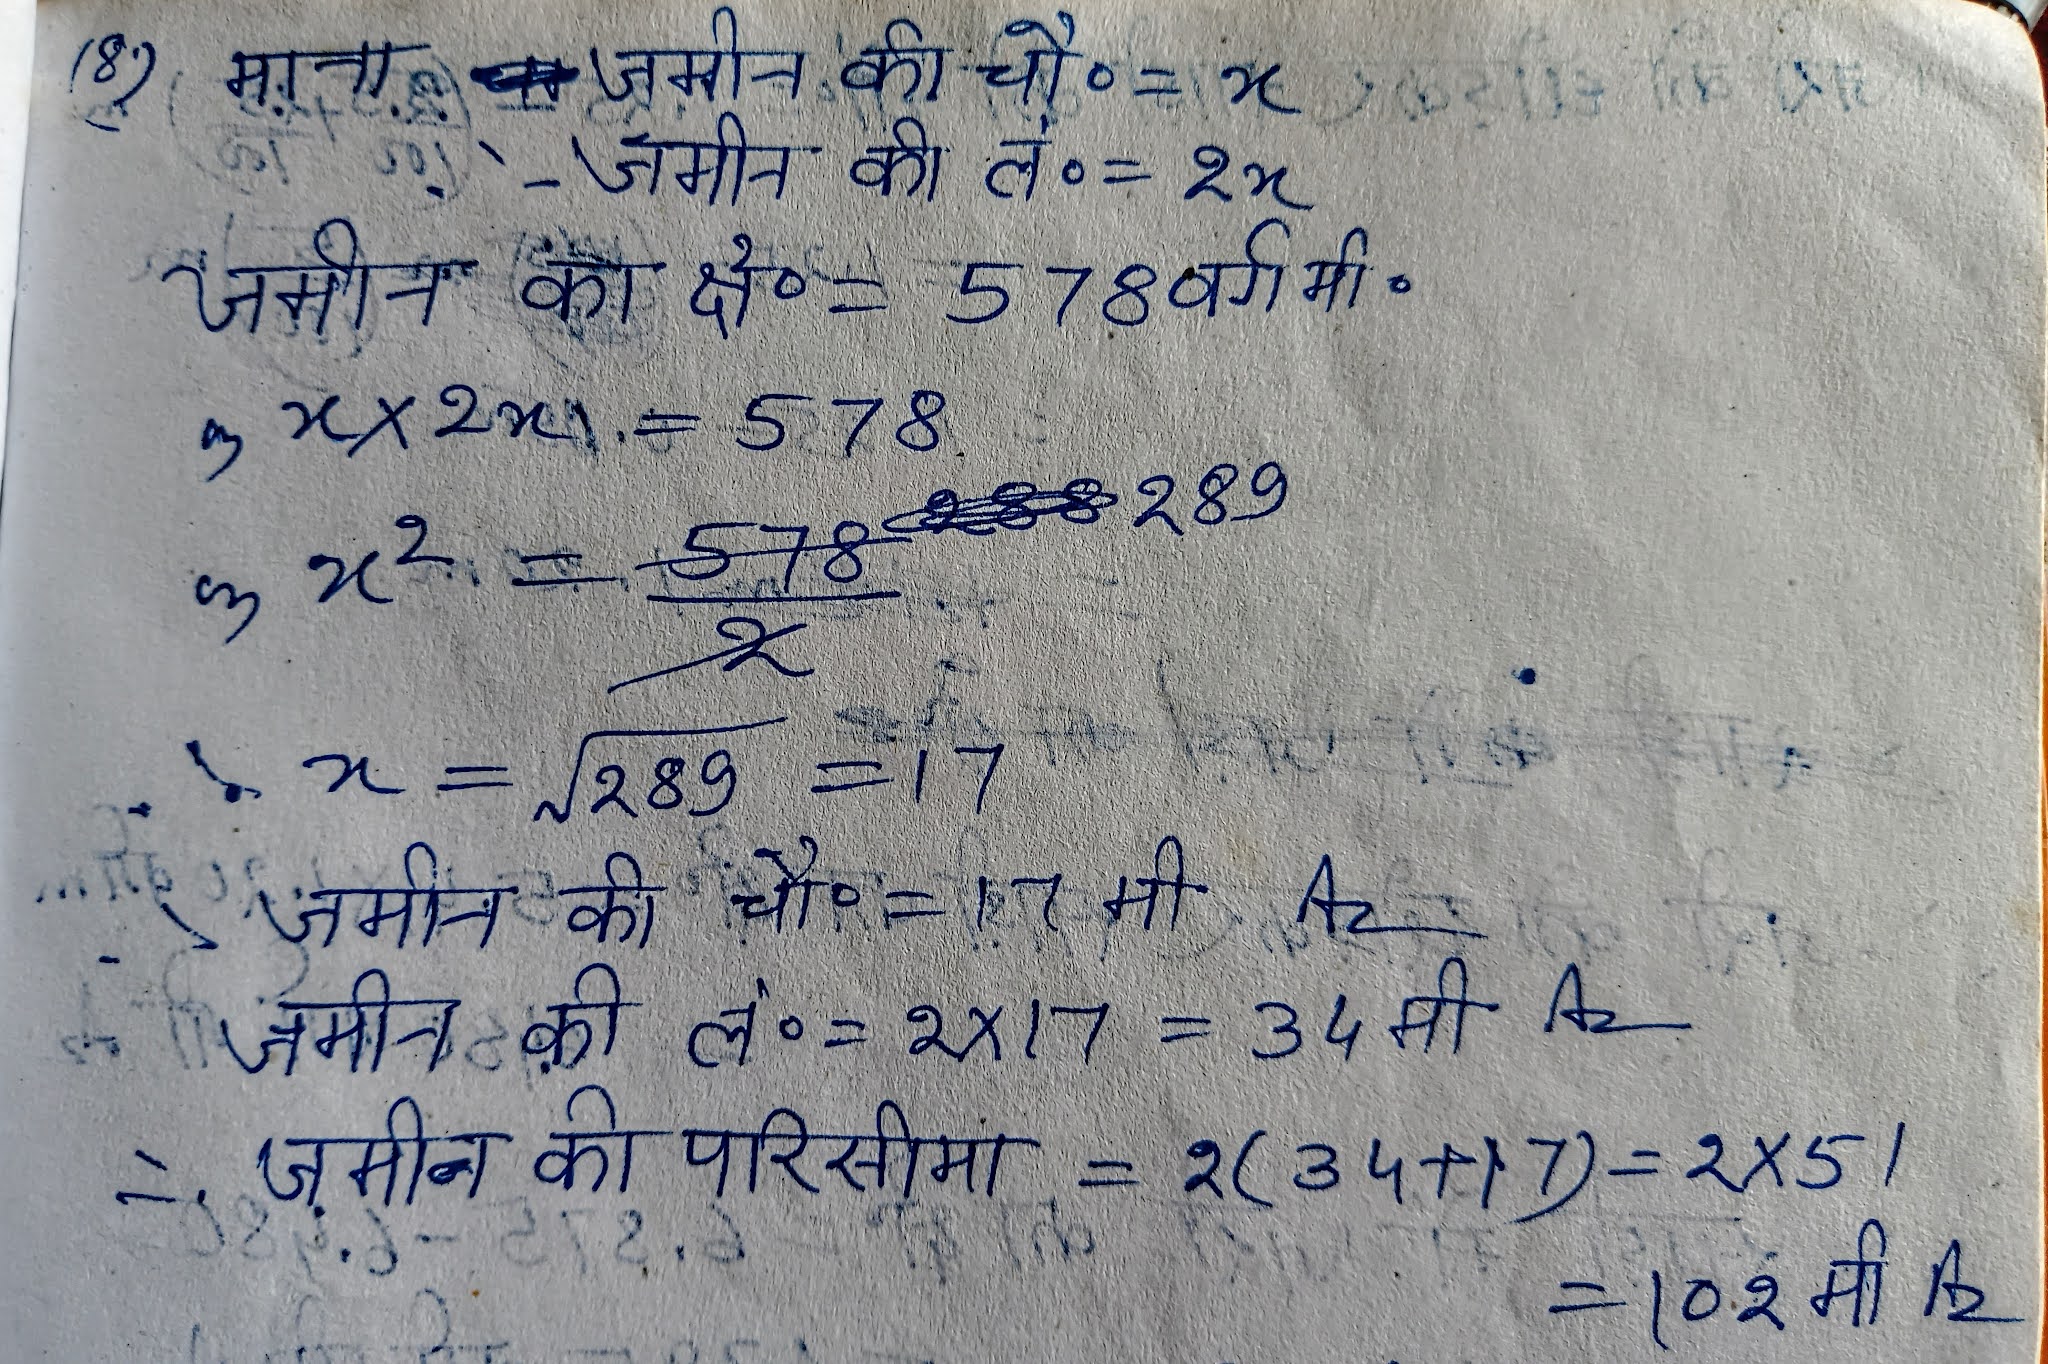 (8) माना जमीन की चौ० = x
∴ जमीन की लं० = 2x
जमीन का क्षे० = 578 वर्ग मी०
या x × 2x = 578
या x² = 578/2 289
∴ x = √289 = 17
∴ जमीन की चौ० = 17 मी Az
जमीन की लं० = 2×17 = 34 मी Az
∴ जमीन की परिसीमा = 2(34+17) = 2×51
= 102 मी Az